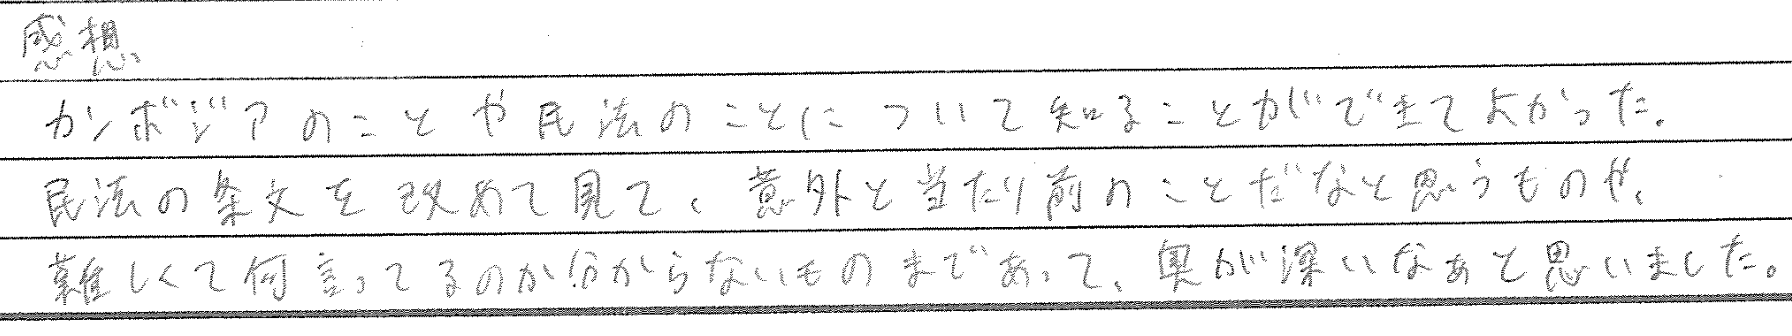 感想
カンボジアのことや民法のことについて知ることができてよかった。
民法の条文を改めて見て、意外と当たり前のことだなと思うものや、
難しくて何言ってるのか分からないものまであって、奥が深いなぁと思いました。